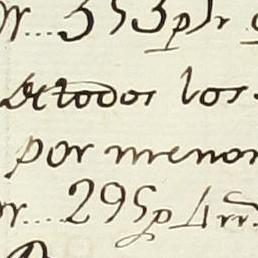 353 p
de todos los
por menor
295 p 4 rr.